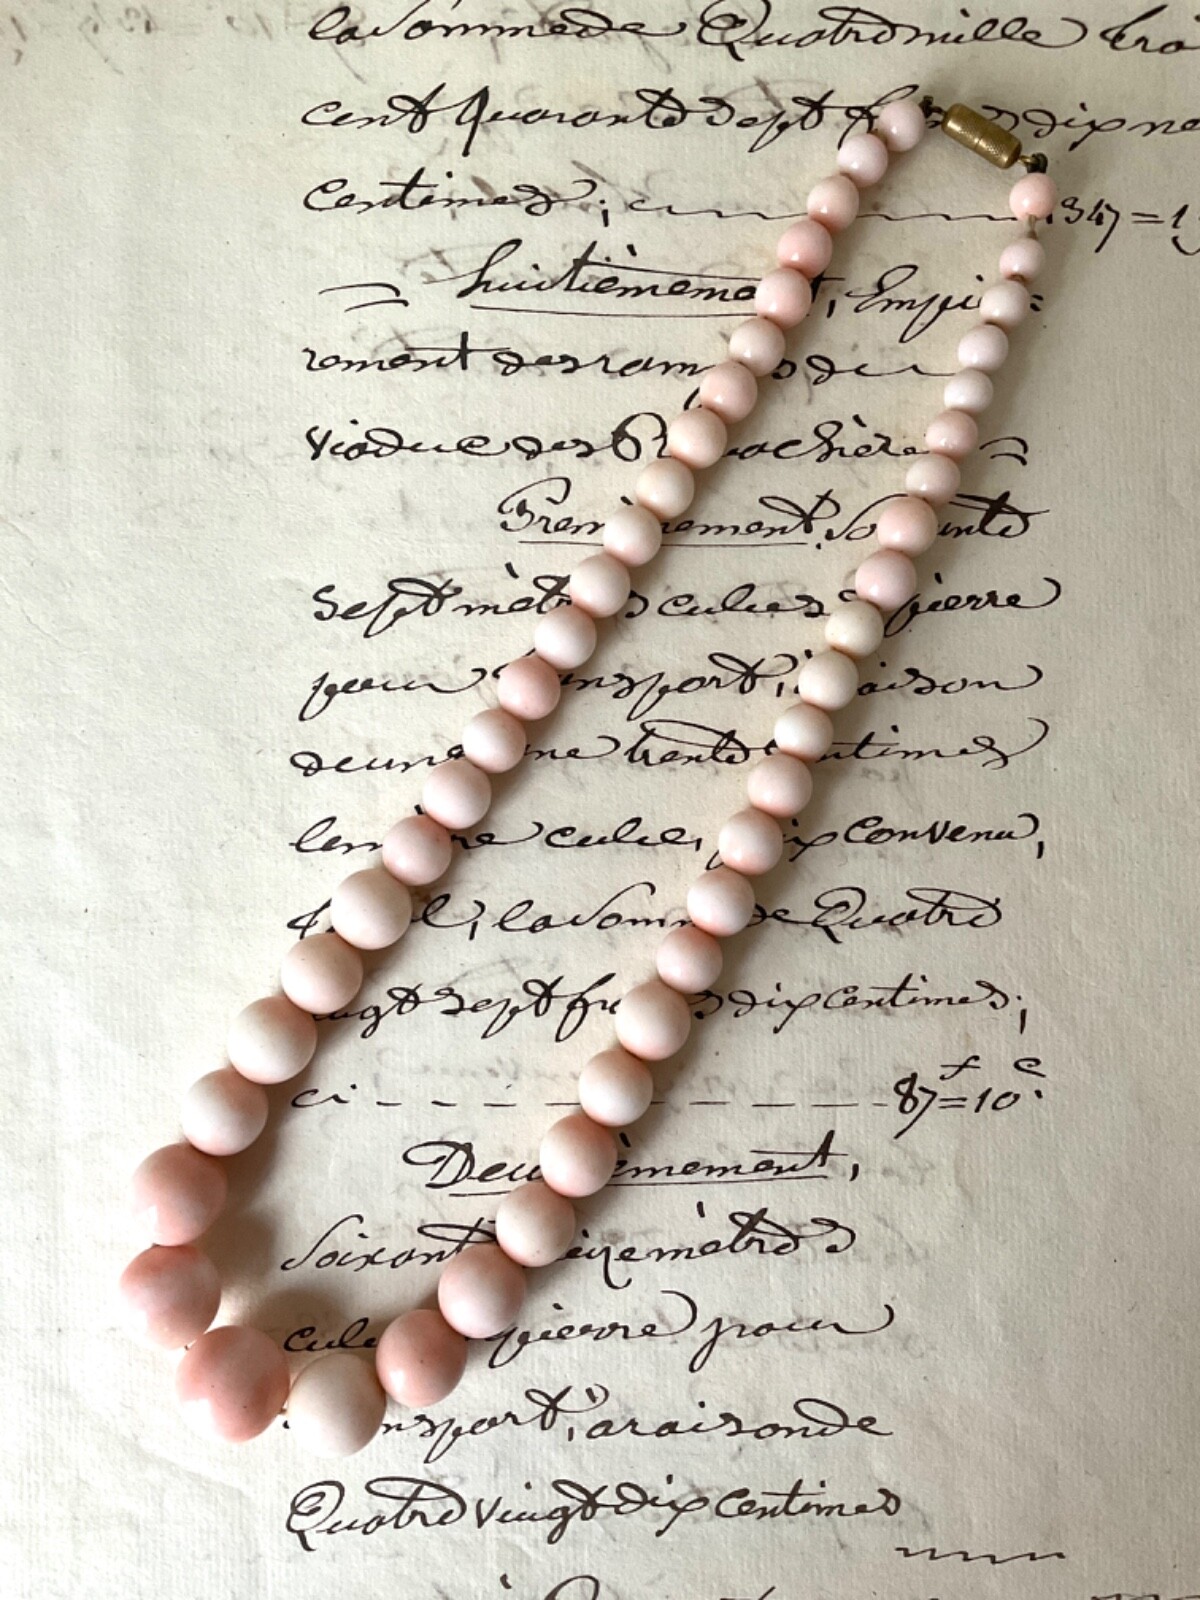 la Somme de Quatre mille troi
cent quarante Sept dix ne
Centimes; 347=1
= huitièmement, Empie=
rement des du
viaduc des =
Premièrement, So ante
Sept mètres cubes pierre
pour ansport, à raison
d'une ne trente ntimes
le m re cube, ix convenu,
l, la Somm de Quatre
ingt Sept fr s dix Centimes;
ci - - - - - - - - 87f=10c.
Deu ièmement,
Soixant eize mètres
cube pierre pour
nsport, à raison de
Quatre vingt dix Centimes